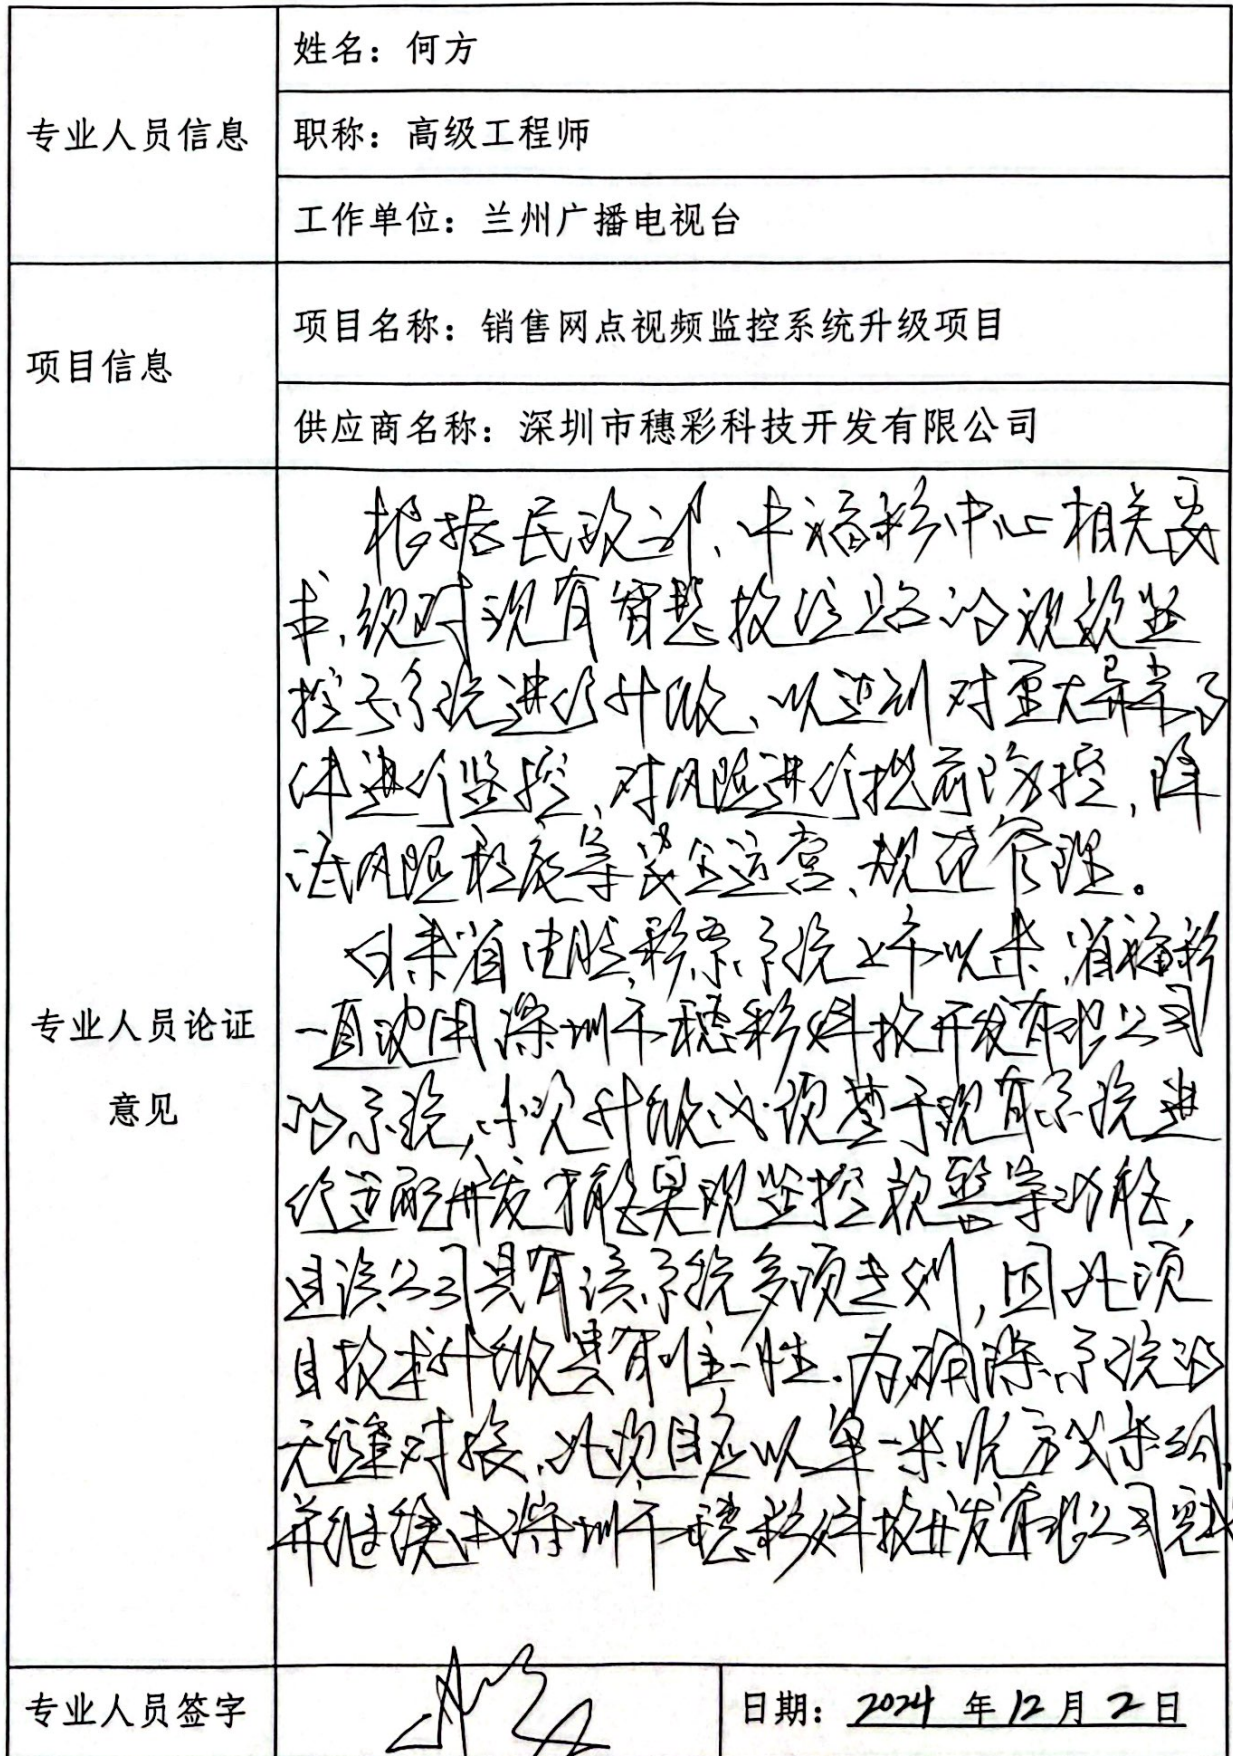 姓名：何方
专业人员信息
职称：高级工程师
工作单位：兰州广播电视台
项目信息
项目名称：销售网点视频监控系统升级项目
供应商名称：深圳市穗彩科技开发有限公司
专业人员论证
意见
根据民政部、中福彩中心相关要
求，须对现有智慧投注站的视频监
控子系统进行升级，以达到对重大异常事
件进行监控，对风险进行提前防控，降
低风险程度等安全运营、规范管理。
自我省电脑彩票系统上市以来，省福彩
一直使用深圳市穗彩科技开发有限公司
的系统，本次升级必须基于现有系统进
行适配开发才能实现监控预警等功能，
且该公司具有该系统多项专利，因此项
目技术升级具有唯一性。为确保系统的
无缝对接，此项目应以单一来源方式采购，
并继续由深圳市穗彩科技开发有限公司完成
专业人员签字
日期：2024年12月2日